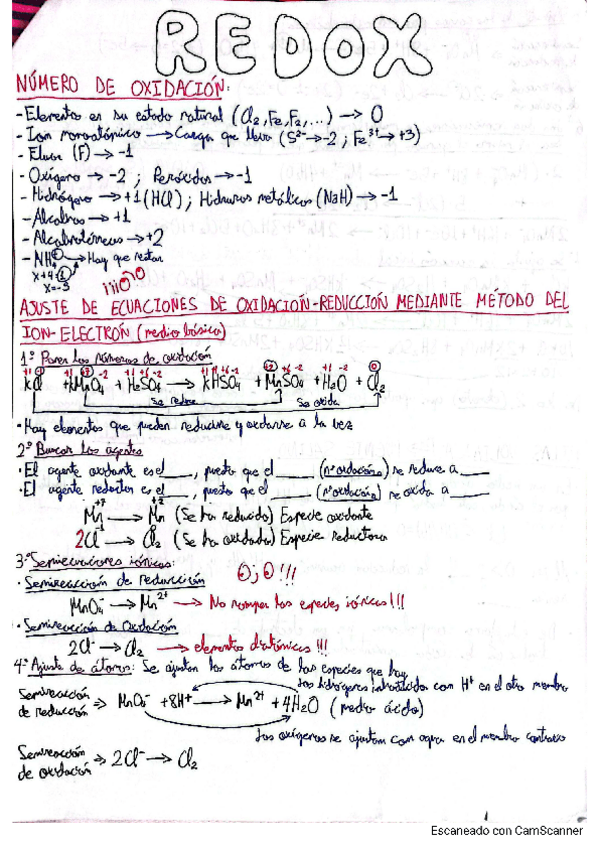 REDOX
NÚMERO DE OXIDACIÓN:
- Elemento en su estado natural (Cl₂, Fe, F₂, ...) → 0
- Ion monoatómico → Carga que lleva (S²⁻→-2 ; Fe³⁺→+3)
- Flúor (F) → -1
- Oxígeno → -2 ; Peróxidos → -1
- Hidrógeno → +1 (HCl) ; Hidruros metálicos (NaH) → -1
- Alcalinos → +1
- Alcalinotérreos → +2
- NH₄⁺ → Hay que restar
x+4=1
x=-3
AJUSTE DE ECUACIONES DE OXIDACION-REDUCCIÓN MEDIANTE MÉTODO DEL
ION-ELECTRÓN (medio básico)
1º Poner los números de oxidación
KCl + KMnO₄ + H₂SO₄ → KHSO₄ + MnSO₄ + H₂O + Cl₂
Se reduce Se oxida
- Hay elementos que pueden reducirse y oxidarse a la vez
2º Buscar los agentes
· El agente oxidante es el ___, puesto que el ___ (nº oxidación) se reduce a ___
· El agente reductor es el ___, puesto que el ___ (nº oxidación) se oxida a ___
+7 +2
Mn → Mn (Se ha reducido) Especie oxidante
2Cl⁻¹ → Cl₂ (Se ha oxidado) Especie reductora
3º Semirreacciones iónicas:
· Semirreacción de Reducción
MnO₄⁻ → Mn²⁺ → No romper las especies iónicas!!!
· Semirreacción de Oxidación
2Cl⁻ → Cl₂ → elementos diatómicos !!!
4º Ajuste de átomos: Se ajustan los átomos de las especies que hay
Los hidrógenos introducidos con H⁺ en el otro miembro
Semirreacción de reducción ⇒ MnO₄⁻ + 8H⁺ → Mn²⁺ + 4H₂O (medio ácido)
Los oxígenos se ajustan con agua en el miembro contrario
Semirreacción de oxidación ⇒ 2Cl⁻ → Cl₂
Escaneado con CamScanner